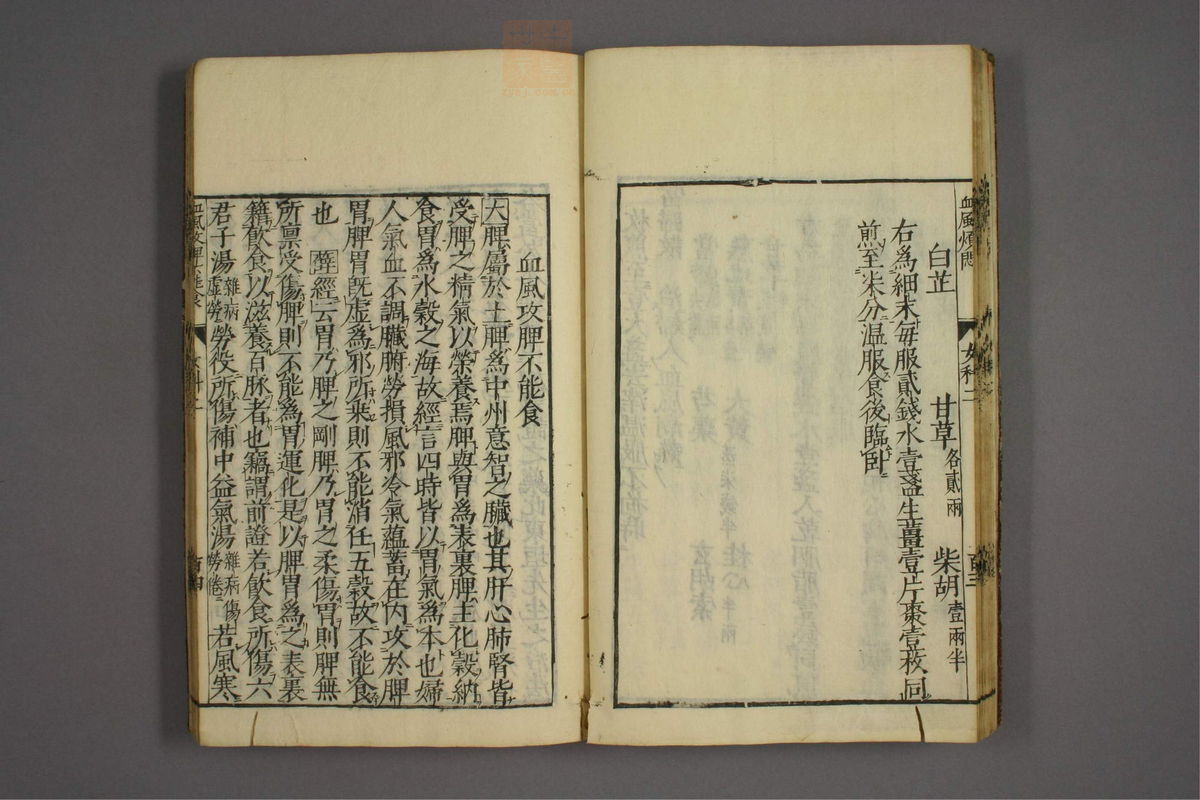 血風煩悶
女科二
百三
白芷　甘草各貳兩　柴胡壹兩半
右爲細末每服貳錢水壹盞生薑壹片棗壹枚同
煎至柒分溫服食後臨臥
血風攻脾不能食
大脾屬於土脾爲中州意智之臟也其肝心肺腎皆
受脾之精氣以榮養焉脾與胃爲表裏脾主化穀納
食胃爲水穀之海故經言四時皆以胃氣爲本也婦
人氣血不調臟腑勞損風邪冷氣蘊蓄在內攻於脾
胃脾胃旣虛爲邪所乗則不能消任五穀故不能食
也　薛經云胃乃脾之剛脾乃胃之柔傷胃則脾無
所禀受傷脾則不能爲胃運化是以脾胃爲之表裏
籍飲食以滋養百脉者也竊謂前證若飲食所傷六
君子湯雜病虛勞勞役所傷補中益氣湯雜病傷勞倦若風寒
血風攻脾不能食
女科二
百四